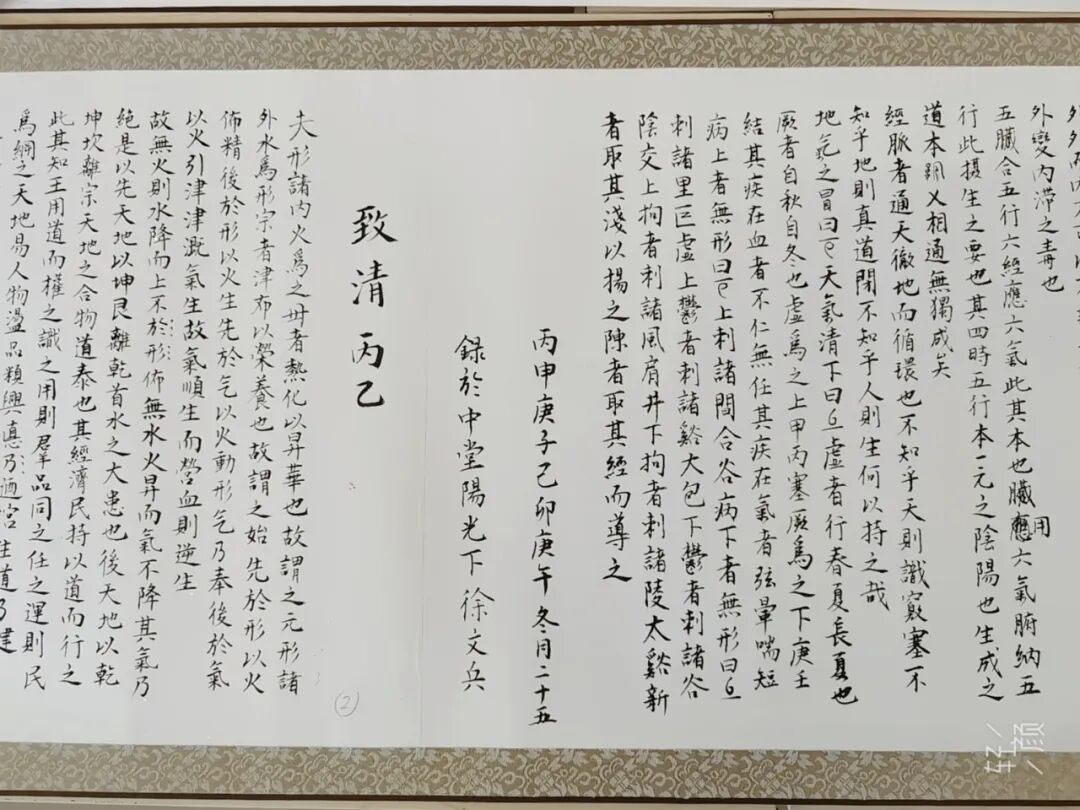 外變内滞之毒也
五臟合五行六經應六氣此其本也臟應六氣腑納五
用
行此摄生之要也其四時五行本一元之陰陽也生成之
道本嗣乂相通無獨成矣
經脈者通天徹地而循環也不知乎天則識竅塞不
知乎地則真道閉不知乎人則生何以持之哉
地炁之冒曰天氣清下曰虚者行春夏長夏也
厥者自秋自冬也虚爲之上甲丙塞厥爲之下庚壬
結其疾在血者不仁無任其疾在氣者弦暈喘短
病上者無形曰上刺諸間合谷病下者無形曰
刺諸里巨虚上鬱者刺諸谿大包下鬱者刺諸谷
陰交上拘者刺諸風肩井下拘者刺諸陵太谿新
者取其淺以揚之陳者取其經而導之
丙申庚子己卯庚午冬月二十五
録於中堂陽光下徐文兵
致清丙乙
夫形諸内火爲之毋者熱化以昇華也故謂之元形諸
外水爲形宗者津布以榮養也故謂之始先於形以火
佈精後於形以火生先於炁以火動形炁乃奉後於氣
以火引津津溉氣生故氣順生而營血則逆生
故無火則水降而上不於形佈無水火昇而氣不降其氣乃
絕是以先天地以坤艮離乾首水之大患也後天地以乾
坤坎離宗天地之合物道泰也其經濟民持以道而行之
此其知王用道而權之識之用則羣品同之任之運則民
爲綱之天地易人物盪品類興悳乃逎宮生道乃建
②
轻颜